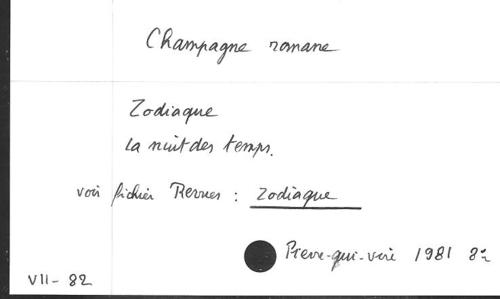 Champagne romane
Zodiaque
La nuit des temps.
voir fichier Revues : Zodiaque
Pierre-qui-vire 1981 8°
VII - 82